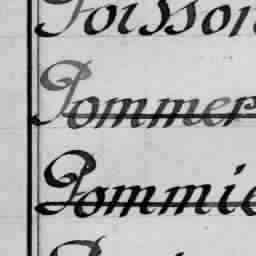 Poisson
Pommer
Pommie